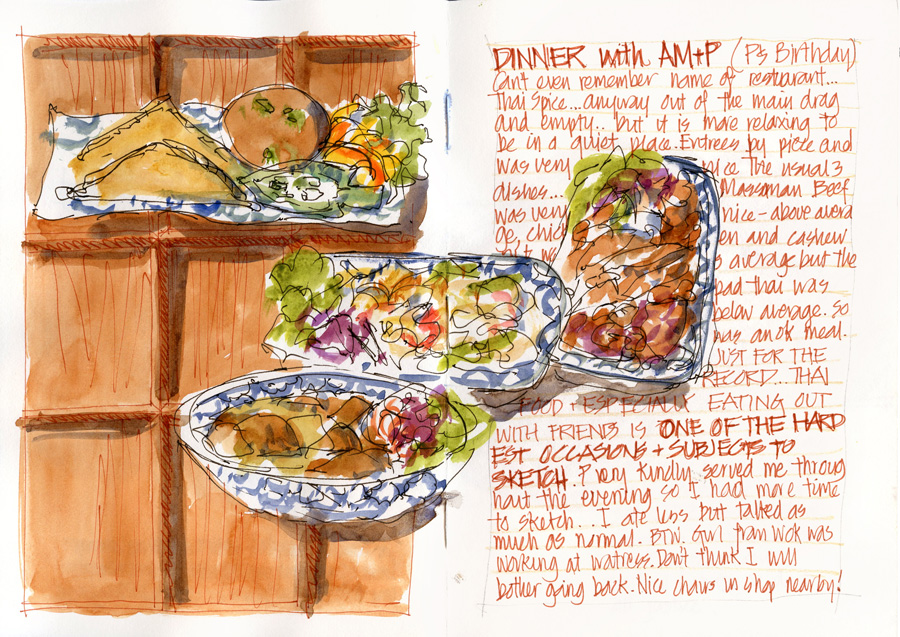 DINNER with AM+P (P's Birthday)
Can't even remember name of restaurant...
Thai Spice... anyway out of the main drag
and empty.. but it is more relaxing to
be in a quiet place. Entrees by piece and
was very nice The usual 3
dishes... Massman Beef
was very nice - above avera
ge, chick en and cashew
average but the
pad thai was
below average. So
was an ok meal.
JUST FOR THE
RECORD... THAI
FOOD + ESPECIALLY EATING OUT
WITH FRIENDS IS ONE OF THE HARD
EST OCCASIONS + SUBJECTS TO
SKETCH. P very kindly served me throug
hout the evening so I had more time
to sketch... I ate less but talked as
much as normal. BTW. Girl from Wok was
working at waitress. Don't think I will
bother going back. Nice chairs in shop nearby!